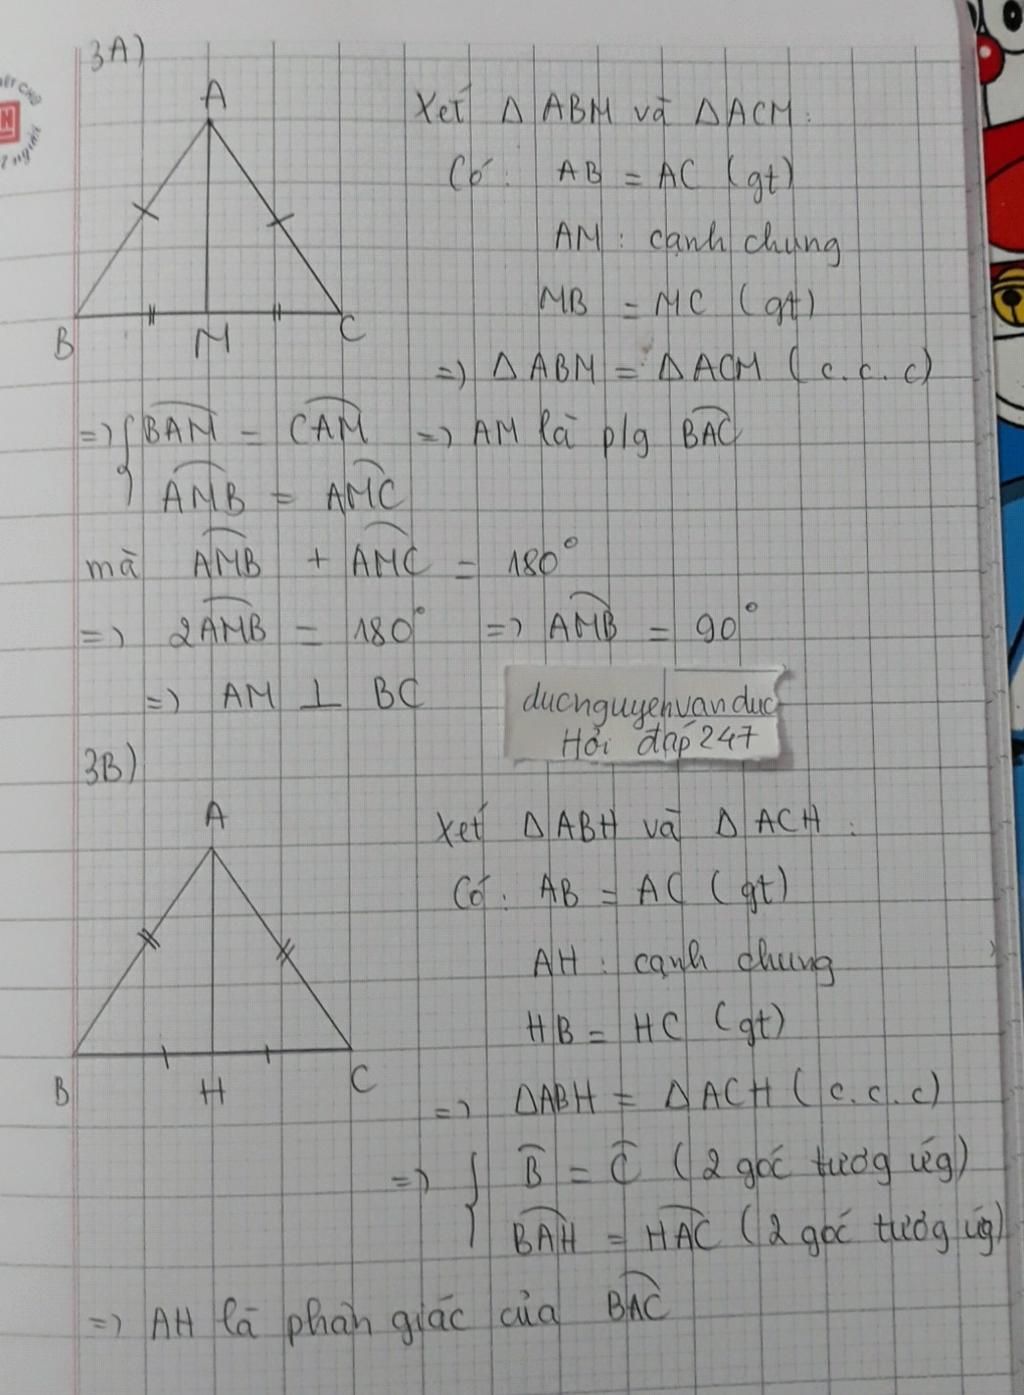 3A)
A
B
M
C
Xét Δ ABM và ΔACM:
Có: AB = AC (gt)
AM: cạnh chung
MB = MC (gt)
=> Δ ABM = Δ ACM (c.c.c)
=> { BAM = CAM => AM là p/g BAC
AMB = AMC
mà AMB + AMC = 180°
=> 2AMB = 180° => AMB = 90°
=> AM ⊥ BC
ducnguyenvanduc
Hỏi đáp 247
3B)
A
B
H
C
Xét Δ ABH và Δ ACH:
Có: AB = AC (gt)
AH: cạnh chung
HB = HC (gt)
=> ΔABH = ΔACH (c.c.c)
=> { B = C (2 góc tươg ứg)
BAH = HAC (2 góc tươg ứg)
=> AH là phân giác của BAC